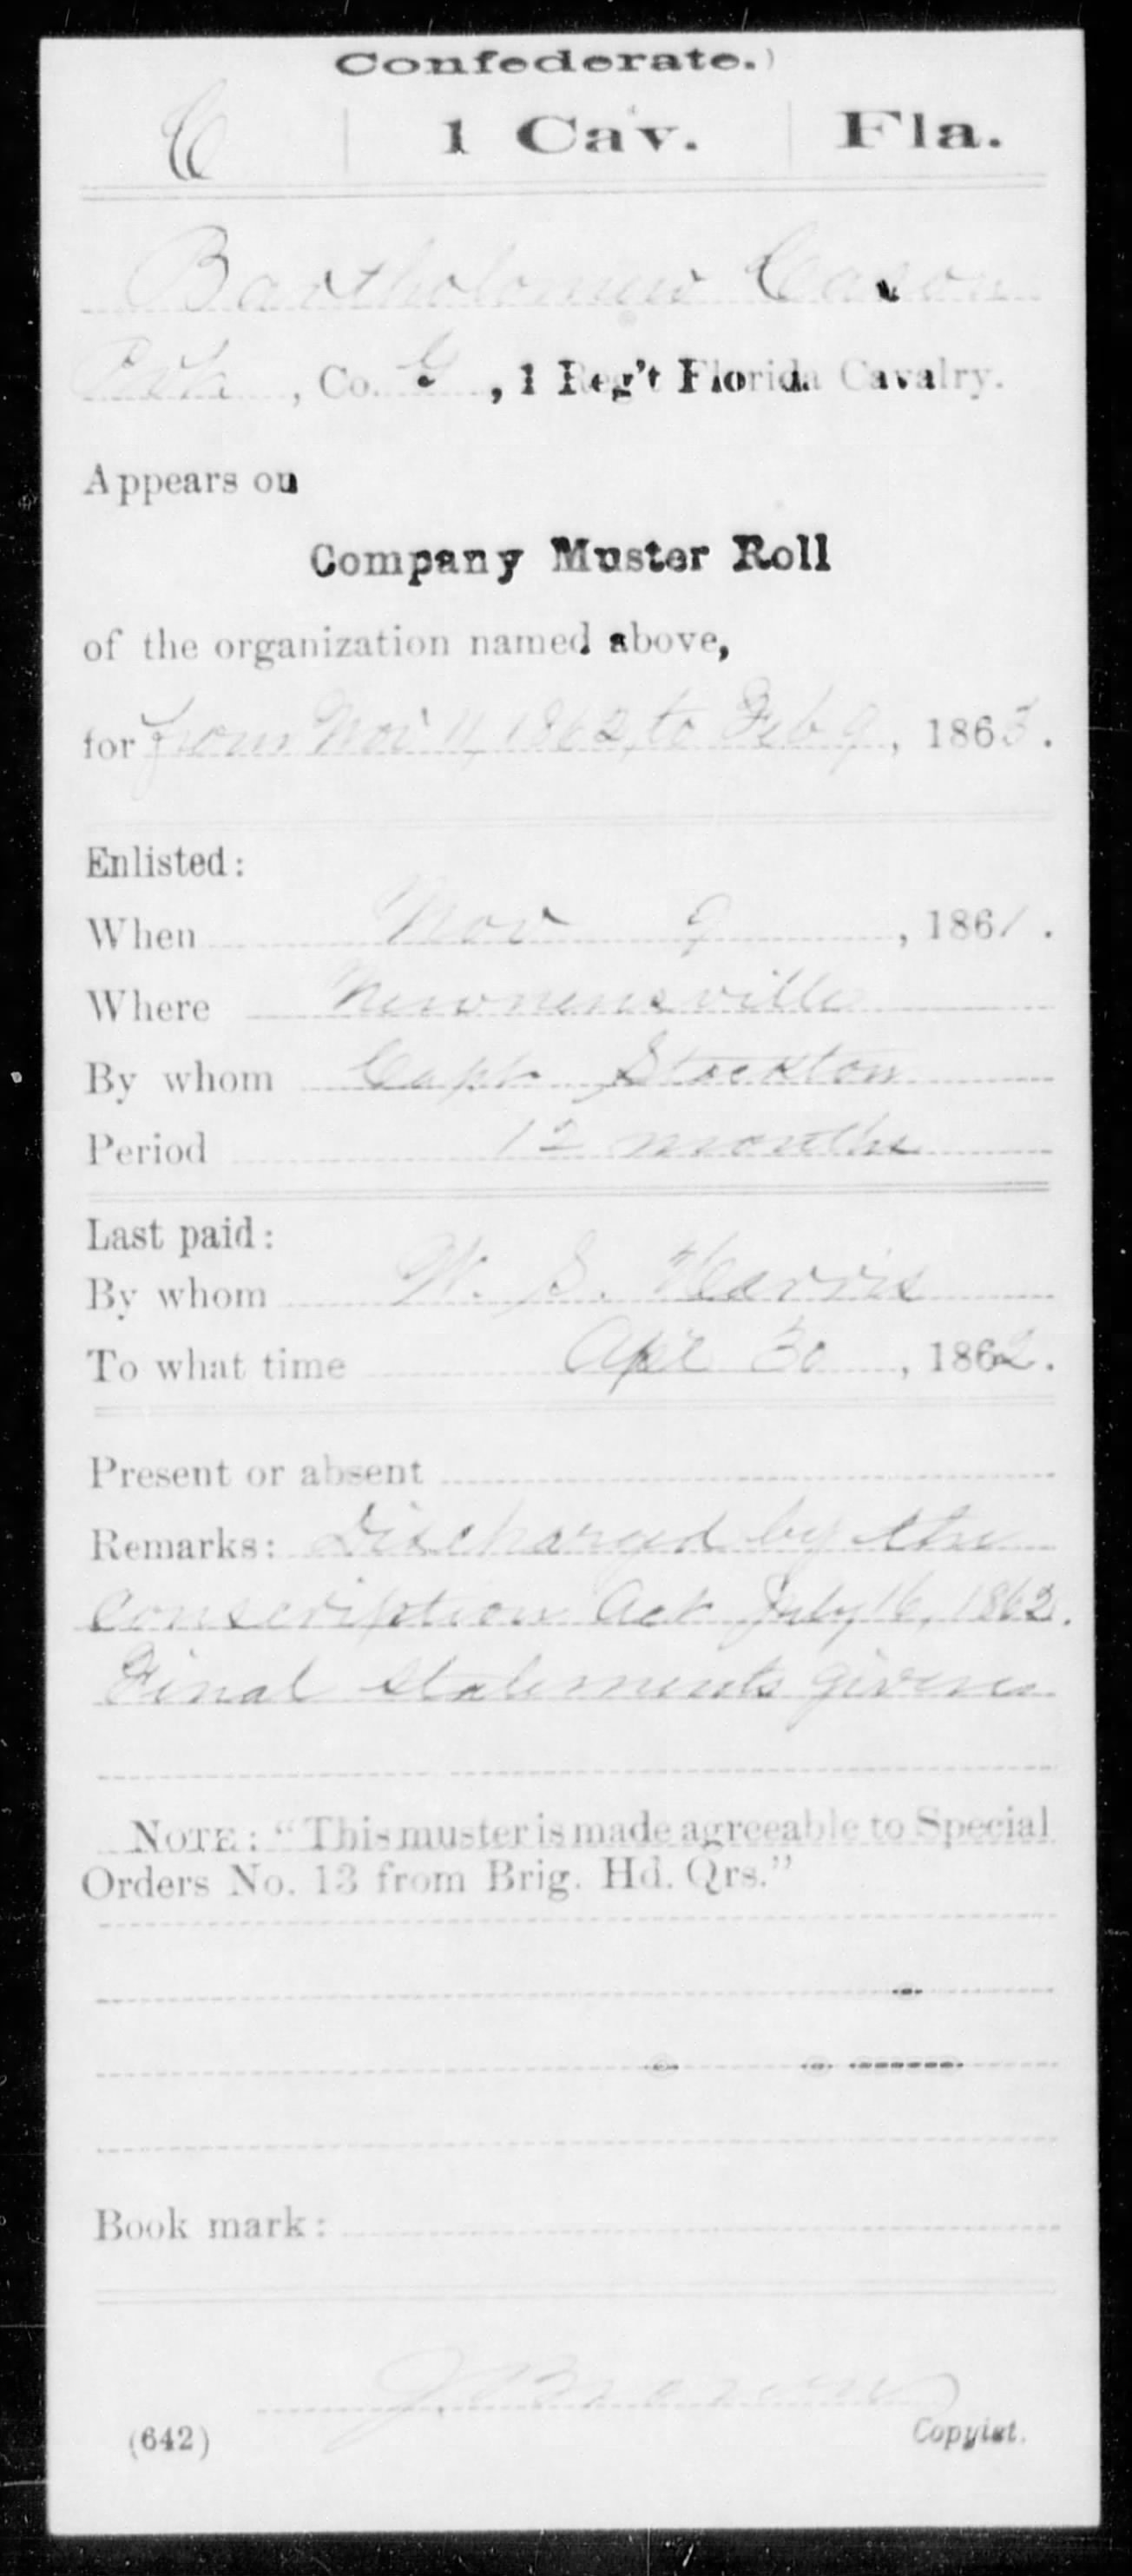 Confederate.)
C | 1 Cav. | Fla.
Bartholomew Cason
Pvt, Co. G, 1 Reg't Florida Cavalry.
Appears on
Company Muster Roll
of the organization named above,
for from Nov 11, 1862, to Feb 9, 1863.
Enlisted:
When Nov 9, 1861.
Where Newnensville
By whom Capt. Stockton
Period 12 months
Last paid:
By whom W. S. Harris
To what time Apl 30, 1862.
Present or absent
Remarks: Discharged by the
conscription Act July 16, 1862.
Final statements given
NOTE: "This muster is made agreeable to Special
Orders No. 13 from Brig. Hd. Qrs."
Book mark:
J. Brown
(642) Copyist.